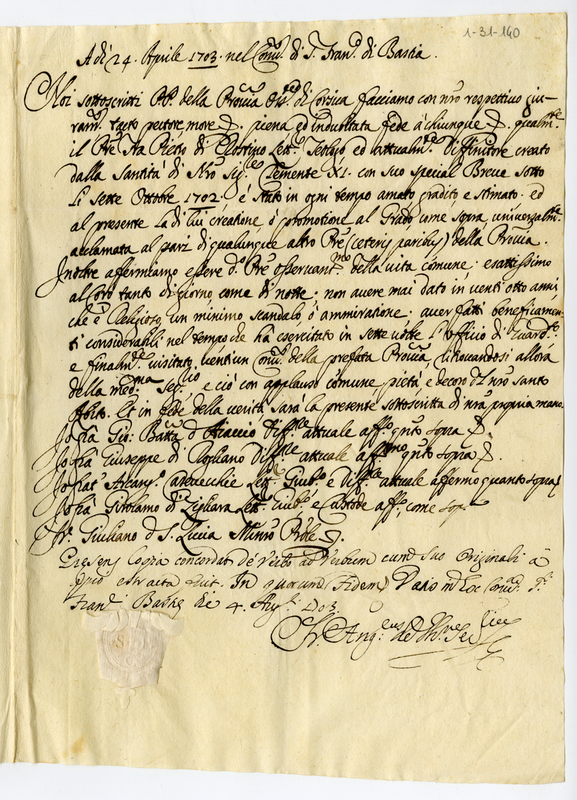 1-31-140
A dì 24. Aprile 1703. nel Conv.to di S. Fran.co di Bastia.
Noi sottoscritti PP. della Provcia di Corsica facciamo con nro respettivo giu-
ram.to tacto pectore more &. piena ed indubitata fede à chiunque &. qualm.te
il Pre Fra Pietro di Lett.re Teologo ed attualm.te Diffinitore creato
dalla Santità di Nro Sig.re Clemente XI. con suo special Breve sotto
li sette Ottobre 1702. è stato in ogni tempo amato gradito e stimato, ed
al presente la di lui creatione, ò promotione al Grado come sopra, universalm.te
acclamata al pari di qualunque altro Pre (ceteris paribus) della Provcia.
Inoltre affermiamo essere d.o Pre osservant.mo della vita comune; esattissimo
al Coro tanto di giorno, come di notte; non avere mai dato in venti otto anni,
che è Religioso, un minimo scandalo, ò ammiratione; aver fatti beneficamen-
ti considerabili nel tempo che ha esercitato in sette volte l'Officio di Guard.no
e finalm.te visitato ventiun Conv.ti della prefata Provcia, ritrovandosi allora
della med.ma Seg.rio e ciò con applauso comune, pietà, e decoro del nro santo
Abito. Et in fede della verità sarà la presente sottoscritta di nra propria mano.
Io fra Gio: Batta d'Aiaccio Diff.re attuale aff.o q.nto sopra &.
Io fra Giuseppe di Rogliano Diff.re attuale affermo q.nto sopra &.
Io frat' Arcang.o Lett. Giub.o e Diff.re attuale affermo quanto sopra
Io fra Girolamo di Zigliara Lett. Giub.o e Custode aff.o come sop.a
Fr. Giuliano di S. Lucia Minro Prõle &.
Presens Copia concordat de Verbo ad Verbum cum suo Originali à
quo extracta fuit. In quorum Fidem Datis in hoc Conv. S.
Franc. Bastie die 4. Aug. 1703.
Fr. Ang.eus